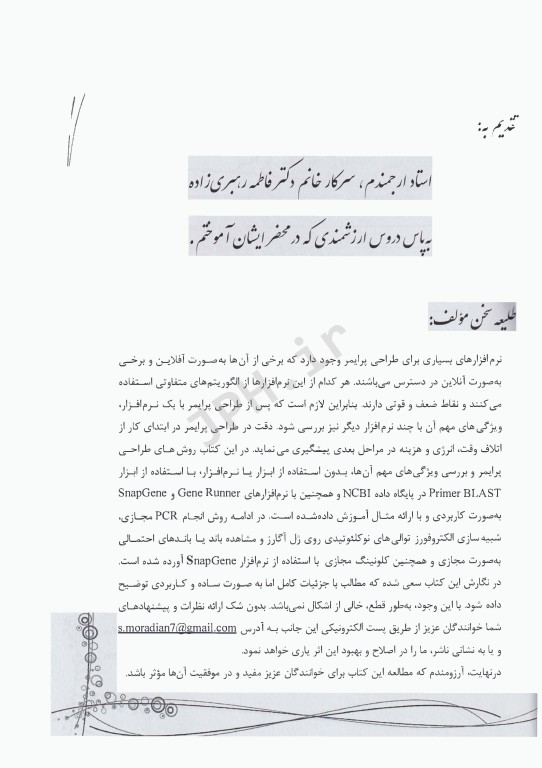 تقدیم به:
استاد ارجمندم، سرکار خانم دکتر فاطمه رهبری‌زاده
به پاس دروس ارزشمندی که در محضر ایشان آموختم.
طلیعه سخن مؤلف:
نرم‌افزارهای بسیاری برای طراحی پرایمر وجود دارد که برخی از آن‌ها به‌صورت آفلاین و برخی
به‌صورت آنلاین در دسترس می‌باشند. هر کدام از این نرم‌افزارها از الگوریتم‌های متفاوتی استفاده
می‌کنند و نقاط ضعف و قوتی دارند. بنابراین لازم است که پس از طراحی پرایمر با یک نرم‌افزار،
ویژگی‌های مهم آن با چند نرم‌افزار دیگر نیز بررسی شود. دقت در طراحی پرایمر در ابتدای کار از
اتلاف وقت، انرژی و هزینه در مراحل بعدی پیشگیری می‌نماید. در این کتاب روش‌های طراحی
پرایمر و بررسی ویژگی‌های مهم آن‌ها، بدون استفاده از ابزار یا نرم‌افزار، با استفاده از ابزار
Primer BLAST در پایگاه داده NCBI و همچنین با نرم‌افزارهای Gene Runner و SnapGene
به‌صورت کاربردی و با ارائه مثال آموزش داده‌شده است. در ادامه روش انجام PCR مجازی،
شبیه‌سازی الکتروفورز توالی‌های نوکلئوتیدی روی ژل آگارز و مشاهده باند یا باندهای احتمالی
به‌صورت مجازی و همچنین کلونینگ مجازی با استفاده از نرم‌افزار SnapGene آورده شده است.
در نگارش این کتاب سعی شده که مطالب با جزئیات کامل اما به صورت ساده و کاربردی توضیح
داده شود. با این وجود، به‌طور قطع، خالی از اشکال نمی‌باشد. بدون شک ارائه نظرات و پیشنهادهای
شما خوانندگان عزیز از طریق پست الکترونیکی این جانب به آدرس s.moradian7@gmail.com
و یا به نشانی ناشر، ما را در اصلاح و بهبود این اثر یاری خواهد نمود.
درنهایت، آرزومندم که مطالعه این کتاب برای خوانندگان عزیز مفید و در موفقیت آن‌ها مؤثر باشد.
JPH.ir